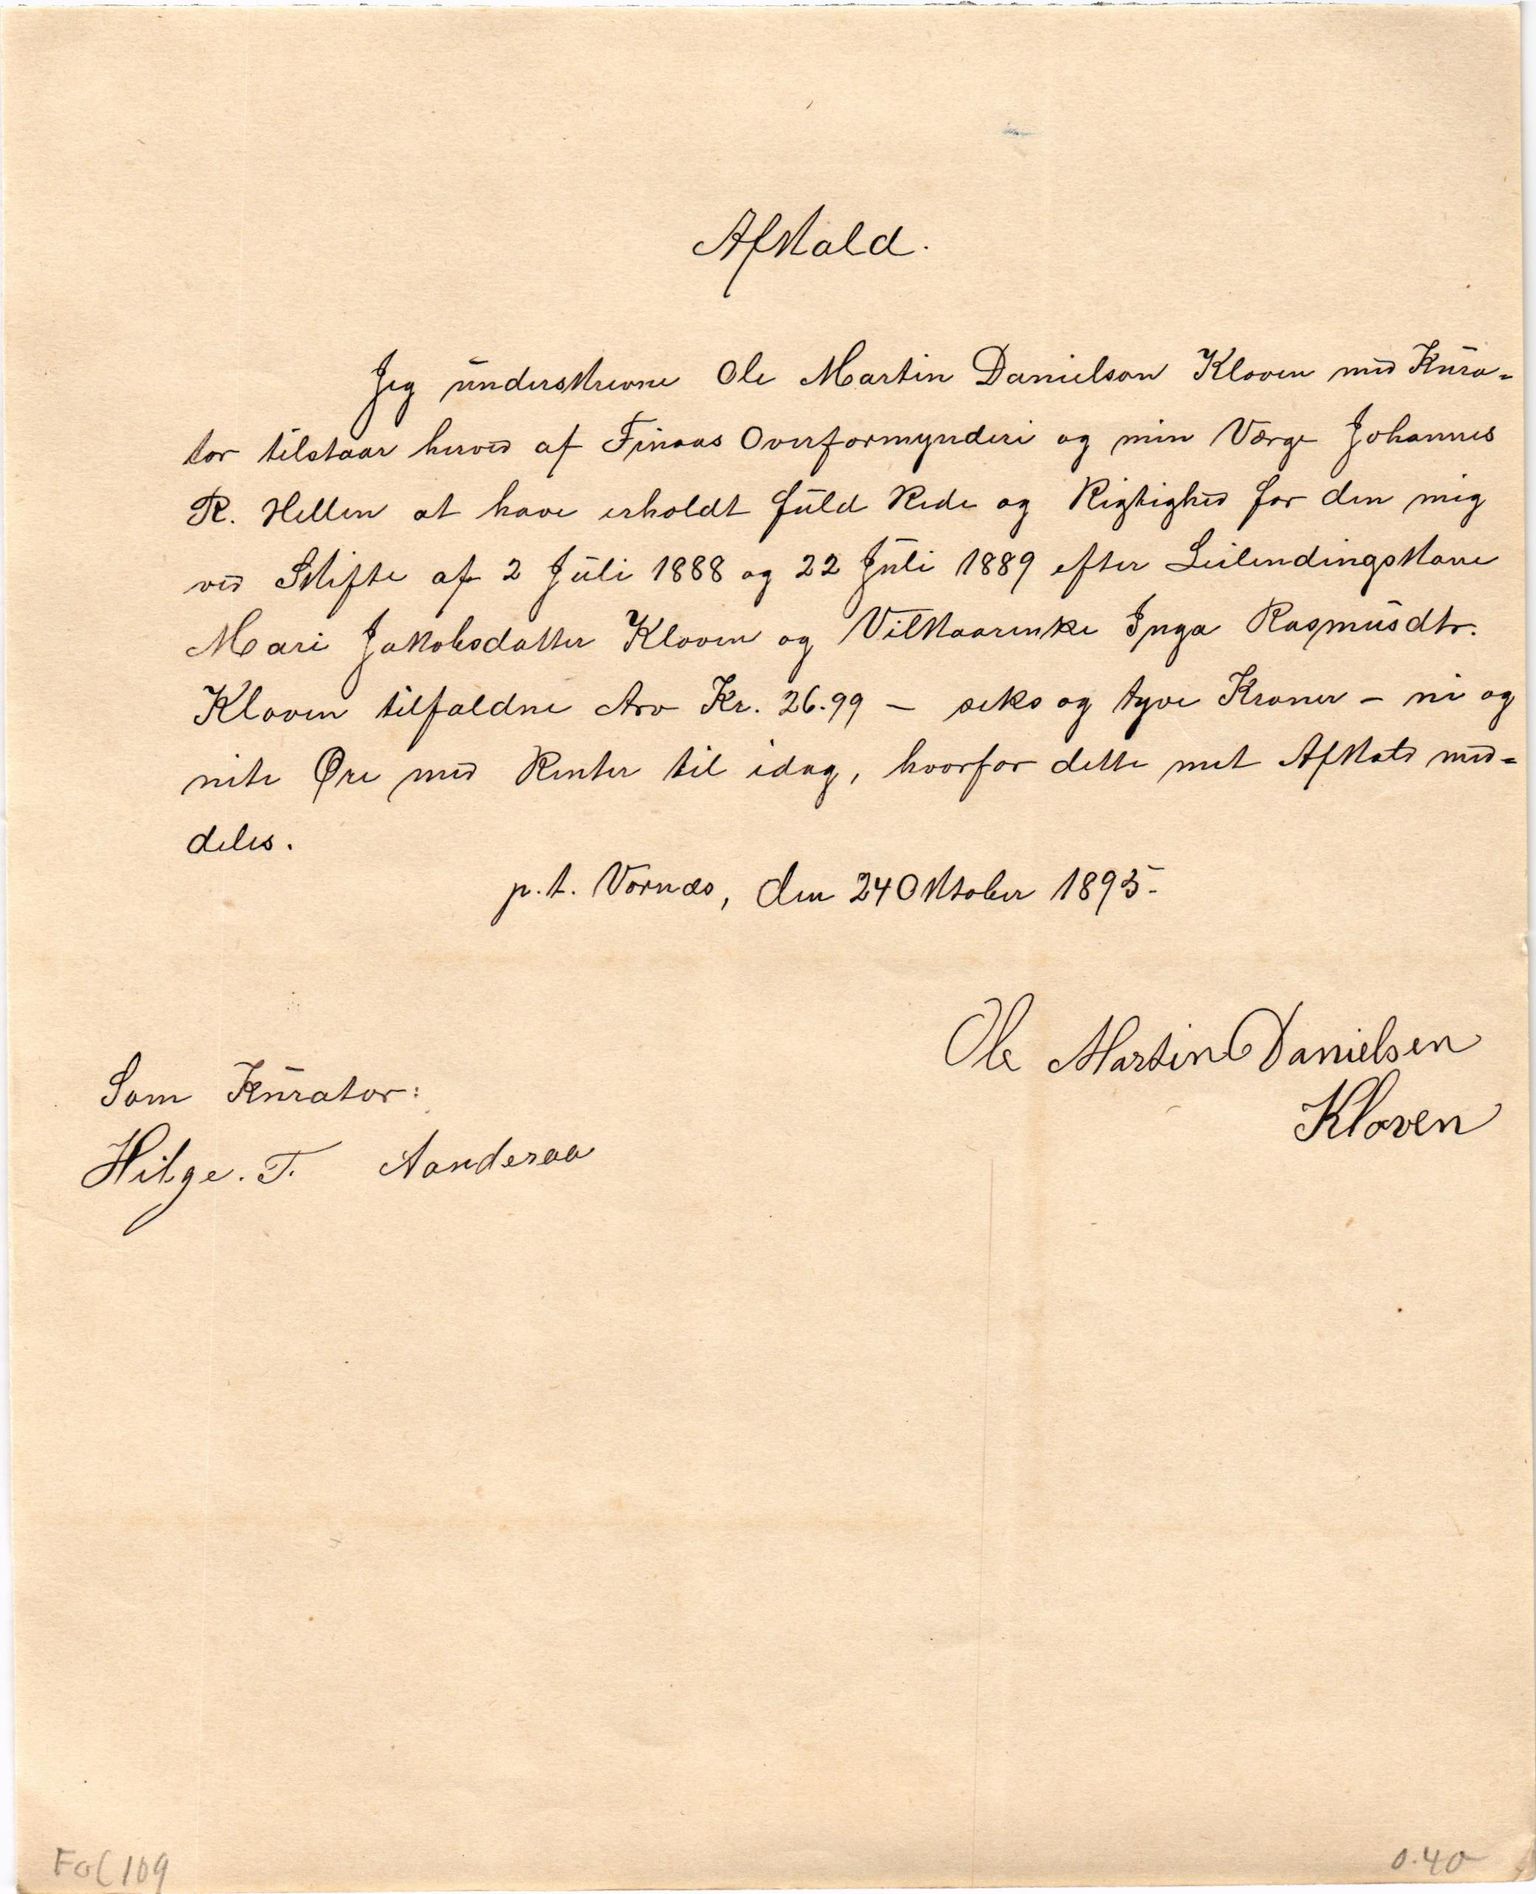 Afkald.
Jeg underskrevne Ole Martin Danielson Kloven med Kura-
tor tilstaar herved af Finaas Overformynderi og min Værge Johannes
R. Hellen at have erholdt fuld Rede og Rigtighed for den mig
ved Skifte af 2 Juli 1888 og 22 Juli 1889 efter Leilendingskone
Mari Jakobsdatter Kloven og Vilkaarenke Inga Rasmusdtr.
Kloven tilfaldne Arv Kr. 26.99 – seks og tyve Kroner – ni og
niti Øre med Renter til idag, hvorfor dette mit Afkald med-
deles.
p.t. Vornæs, den 24 Oktober 1895.
Ole Martin Danielsen
Kloven
Som Kurator:
Helge. T. Aanderaa
Fol 109
0.40